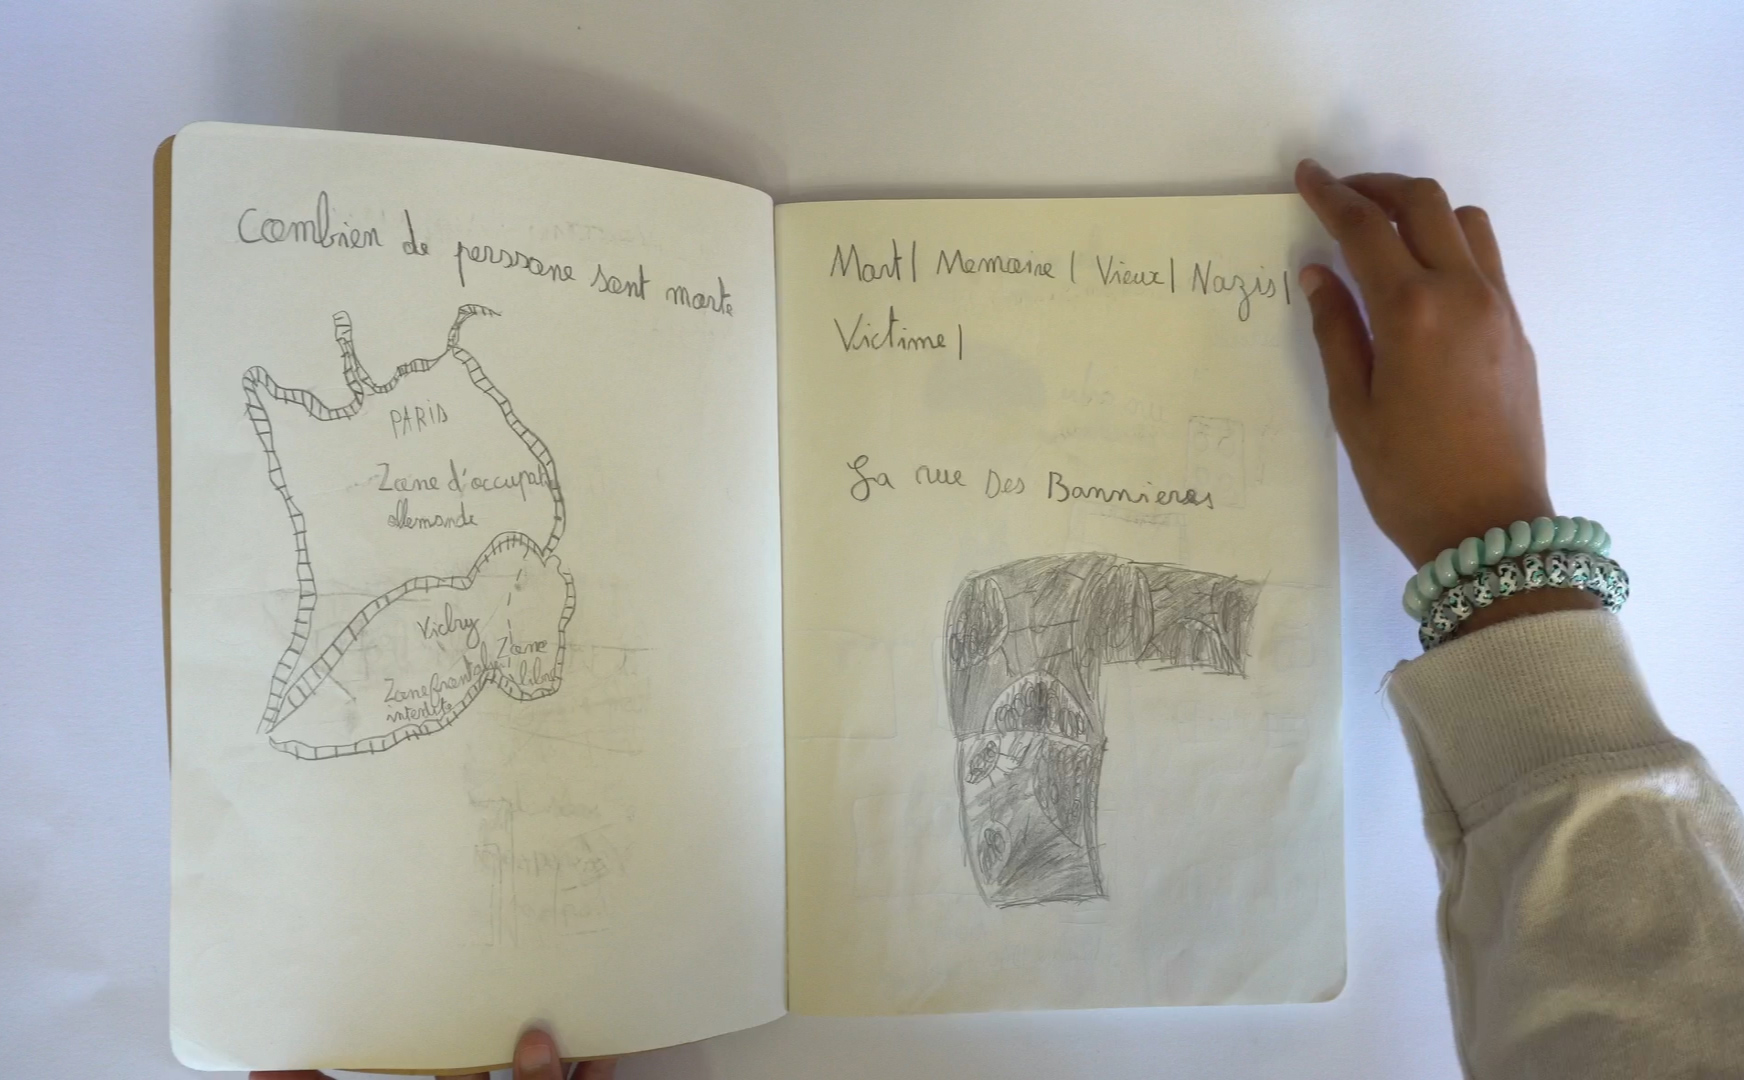 Combien de perssone sont morte
PARIS
Zone d'occupati
allemande
Vichy
Zone
libre
Zone frontal
interdite
Mort| Memoire | Vieux| Nazis|
Victime|
La rue Des Bannieres